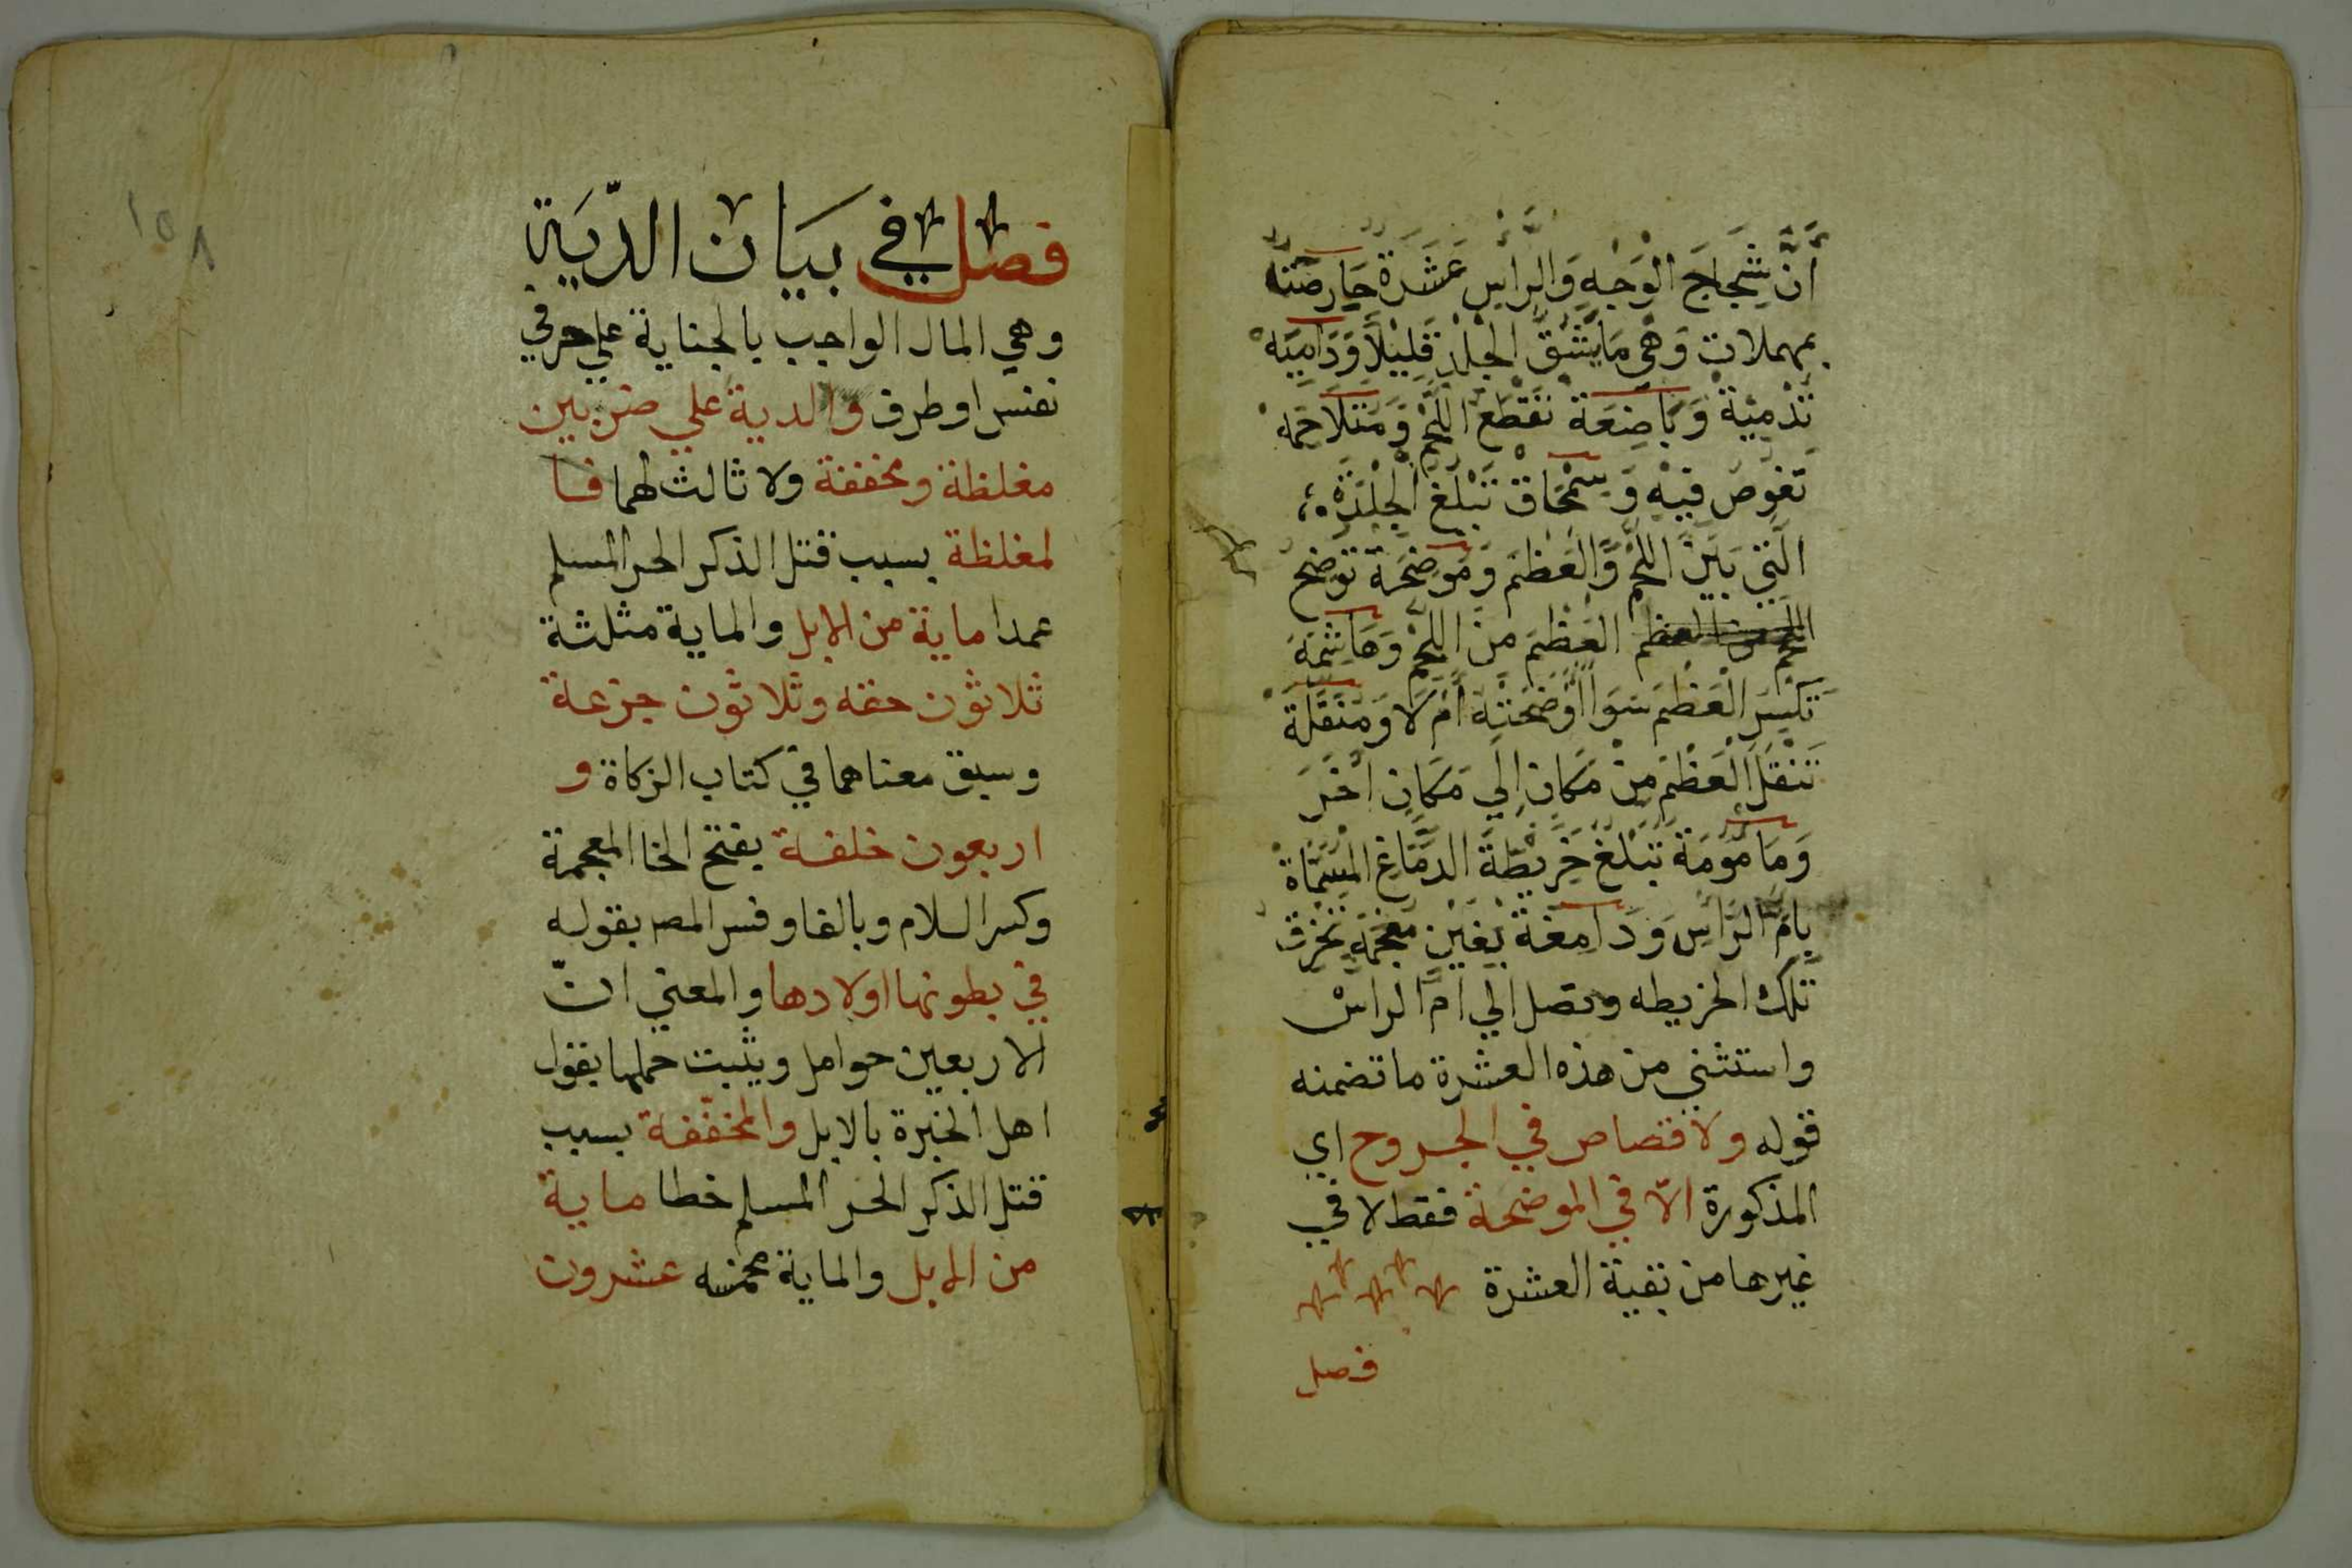 أَنَّ شِجَاجَ الْوَجْهِ وَالرَّأْسِ عَشَرَةٌ حَارِصَتْهُ
بمهملات وَهِيَ مَا يَشُقُّ الْجِلْدَ قَلِيْلاً وَدَامِيَه
تُدْمِيْهُ وَبَاضِعَة تَقْطَعُ اللَّحْمَ وَمُتَلاَحِمَه
تَغُوْصُ فِيْهِ وَسِمْحَاق تَبْلُغُ الْجِلْدَةَ
الَّتِي بَيْنَ اللَّحْمِ وَالْعَظْمِ وَمُوضِحَة تُوضِحُ
اللحم من العظم الْعَظْمَ مِنَ اللَّحْمِ وَهَاشِمَة
تَكْسِرُ الْعَظْمَ سَوَا أَوْضَحَتْهُ أَمْ لَا وَمُنَقِّلَة
تَنْقُلُ الْعَظْمَ مِنْ مَكَانٍ إِلَي مَكَانٍ أَخَرَ
وَمَامُومَة تَبْلُغُ خَرِيْطَةَ الدِّمَاغِ الْمُسَمَّاة
بِأُمِّ الرَّأْسِ وَدَامِغَة بِغَيْنٍ مُعْجَمَةٍ تَخْرِقُ
تِلْكَ الخريطه وتصل الي ام الراس
واستثني من هذه العشرة ما تضمنه
قوله ولا قصاص في الجروح اي
المذكورة الّا في الموضحة فقط لا في
غيرها من بقية العشرة
فصل
١٥٨
فصل في بيان الدّيَة
وهي المال الواجب بالجناية علي حر في
نفس او طرف والدية علي ضربين
مغلظة ومخففة ولا ثالث لهما فا
لمغلظة بسبب قتل الذكر الحر المسلم
عمدا ماية من الابل والماية مثلثة
ثلاثون حقه وثلاثون جزعة
وسبق معناهما في كتاب الزكاة و
اربعون خلفة بفتح الخا المعجمة
وكسر اللام وبالفا وفسر المصـ بقوله
في بطونها اولادها والمعني انّ
الاربعين حوامل ويثبت حملها بقول
اهل الخبرة بالابل والمخفّفة بسبب
قتل الذكر الحر المسلم خطا ماية
من الابل والماية مخمسه عشرون